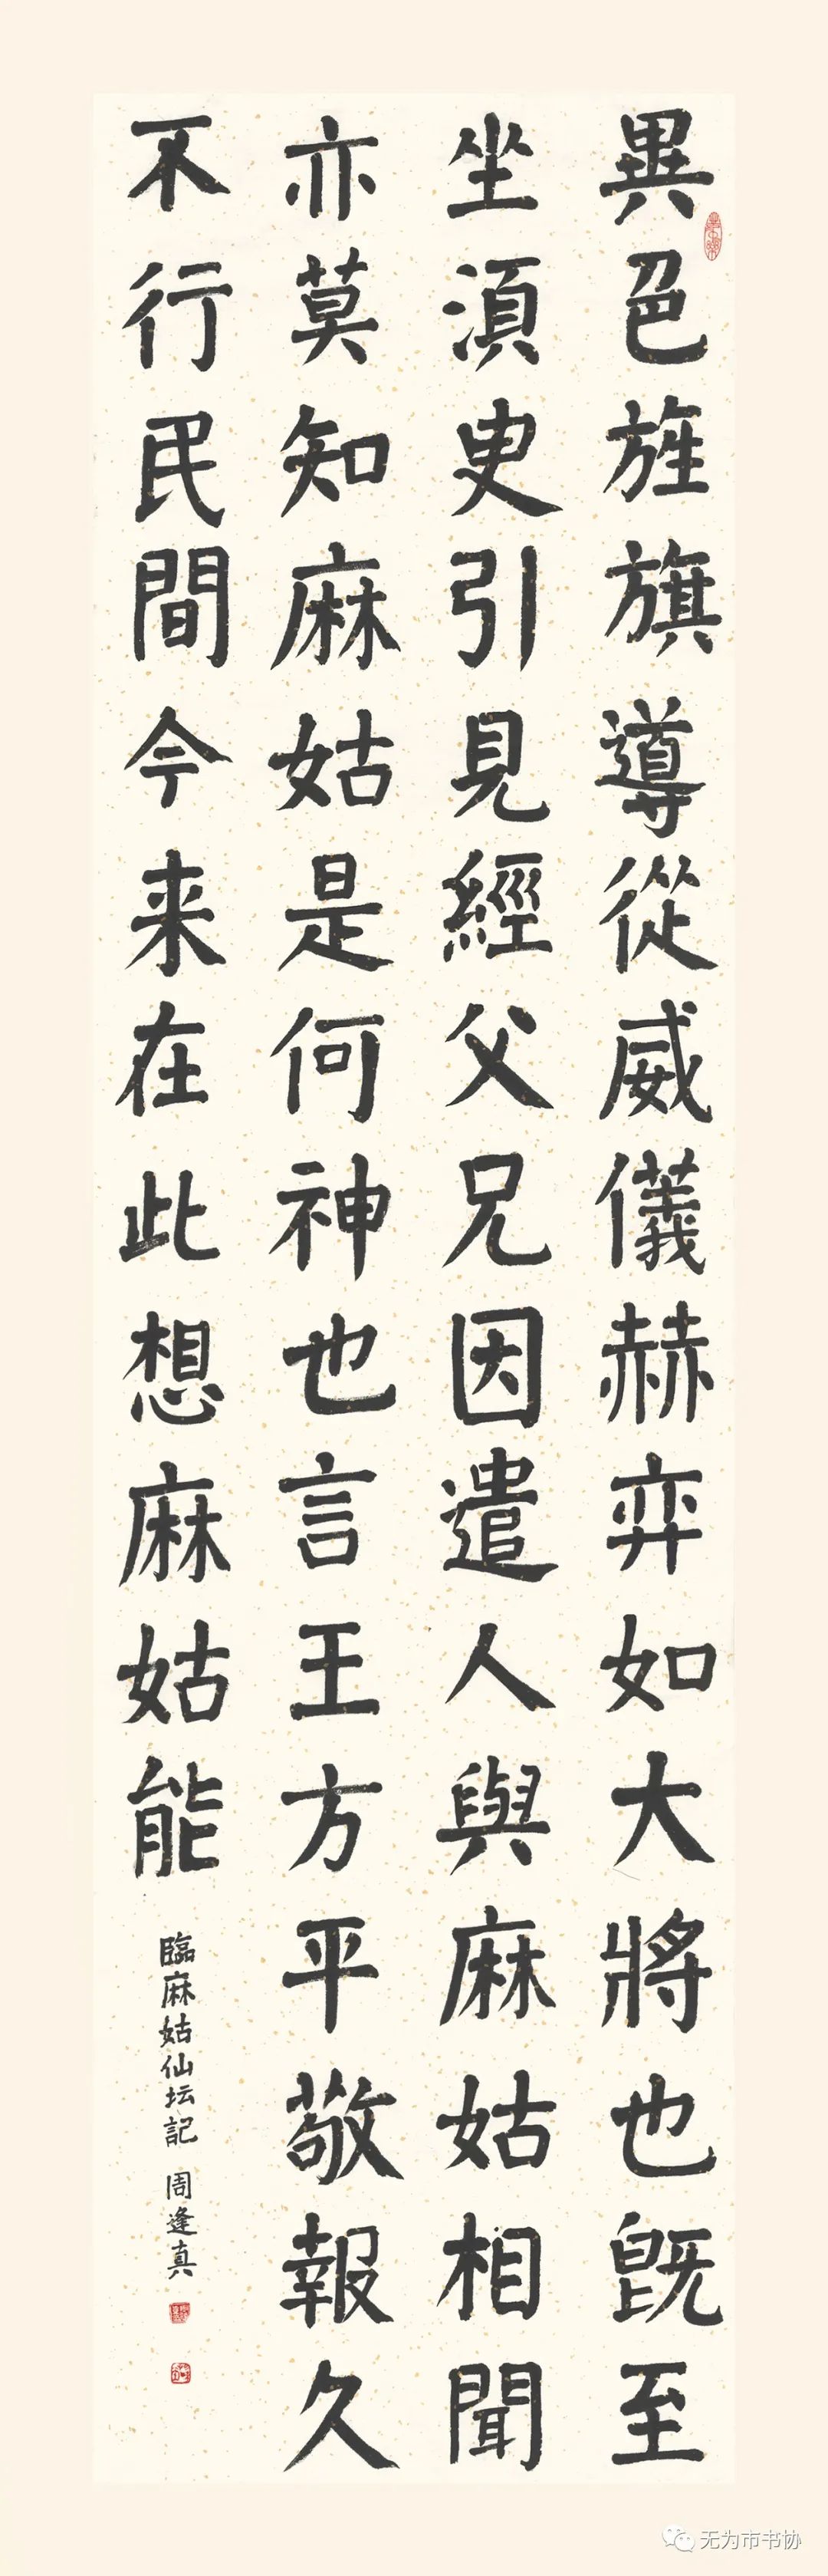 異色旌旗導從威儀赫弈如大將也既至
坐須臾引見經父兄因遣人與麻姑相聞
亦莫知麻姑是何神也言王方平敬報久
不行民間今来在此想麻姑能
臨麻姑仙坛記 周逢真
无为市书协